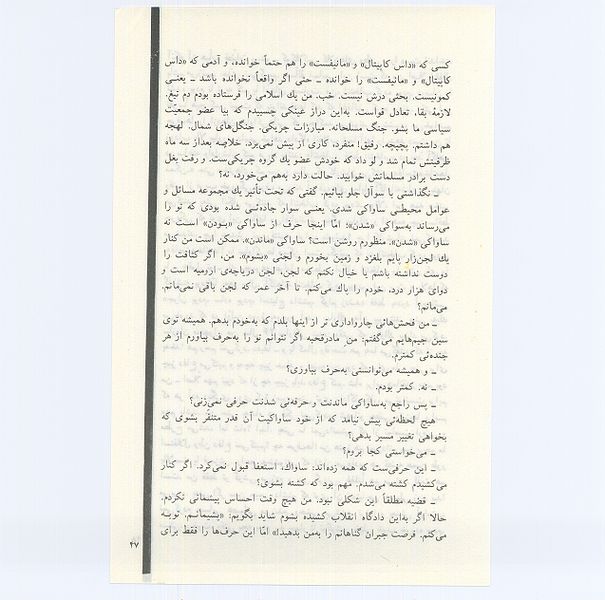 کسی که «داس کاپیتال» و «مانیفست» را هم حتماً خوانده، و آدمی که «داس
کاپیتال» و «مانیفست» را خوانده ـ حتی اگر واقعاً نخوانده باشد ـ یعنی
کمونیست. بحثی درش نیست. خب. من یك اسلامی را فرستاده بودم دم تیغ.
لازمهٔ بقا، تعادل قواست. به‌این دراز عینکی چسبیدم که بیا عضو جمعیّت
سیاسی ما بشو. جنگ مسلحانه. مبارزات چریکی. جنگل‌های شمال. لهجه
هم داشتم. پچپچه. رفیق! منفرد، کاری از پیش نمی‌برد. خلاصه بعداز سه ماه
ظرفیتش تمام شد و لو داد که خودش عضو یك گروه چریکی‌ست. و رفت بغل
دست برادر مسلمانش خوابید. حالت دارد به‌هم می‌خورد، نه؟
ـ نگذاشتی با سوآل جلو بیائیم. گفتی که تحت تأثیر یك مجموعه مسائل و
عوامل محیطی ساواکی شدی. یعنی سوار جاده‌ئی شده بودی که تو را
می‌رساند به‌سواکی «شدن»؛ امّا اینجا حرف از ساواکی «بودن» است نه
ساواکی «شدن». منظورم روشن است؟ ساواکی «ماندن». ممکن است من کنار
یك لجن‌زار پایم بلغزد و زمین بخورم و لجنی «بشوم». من، اگر کثافت را
دوست نداشته باشم یا خیال نکنم که لجن، لجن دریاچه‌ی ارومیه است و
دوای هزار درد، خودم را پاك می‌کنم. تا آخر عمر که لجن باقی نمی‌مانم.
می‌مانم؟
ـ من فحش‌هائی چارواداری تر از اینها بلدم که به‌خودم بدهم. همیشه توی
سین جیم‌هایم می‌گفتم: من مادرقحبه اگر نتوانم تو را به‌حرف بیاورم از هر
جنده‌ئی کمترم.
ـ و همیشه می‌توانستی به‌حرف بیاوری؟
ـ نه. کمتر بودم.
ـ پس راجع به‌ساواکی ماندنت و حرفه‌ئی شدنت حرفی نمی‌زنی؟
هیچ لحظه‌ئی پیش نیامد که از خود ساواکیت آن قدر متنفّر بشوی که
بخواهی تغییر مسیر بدهی؟
ـ می‌خواستی کجا بروم؟
ـ این حرفی‌ست که همه زده‌اند: ساواك، استعفا قبول نمی‌کرد. اگر کنار
می‌کشیدم کشته می‌شدم. مهم بود که کشته بشوی؟
ـ قضیه مطلقاً این شکلی نبود. من هیچ وقت احساس پیشمانی نکردم.
حالا اگر به‌این دادگاه انقلاب کشیده بشوم شاید بگویم: «پشیمانم. توبه
می‌کنم. فرصت جبران گناهانم را به‌من بدهید!» امّا این حرف‌ها را فقط برای
۴۷